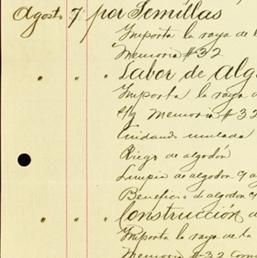 Agosto 7 por Semillas
Importa la raya de
Memoria #32
" " " Labor de alg
Importa la raya d
Memoria #32
Cuidando
Riego de algodón
Limpia de algodon
Beneficio de algodon
" " " Construcción d
Importa la raya de la
Memoria #32